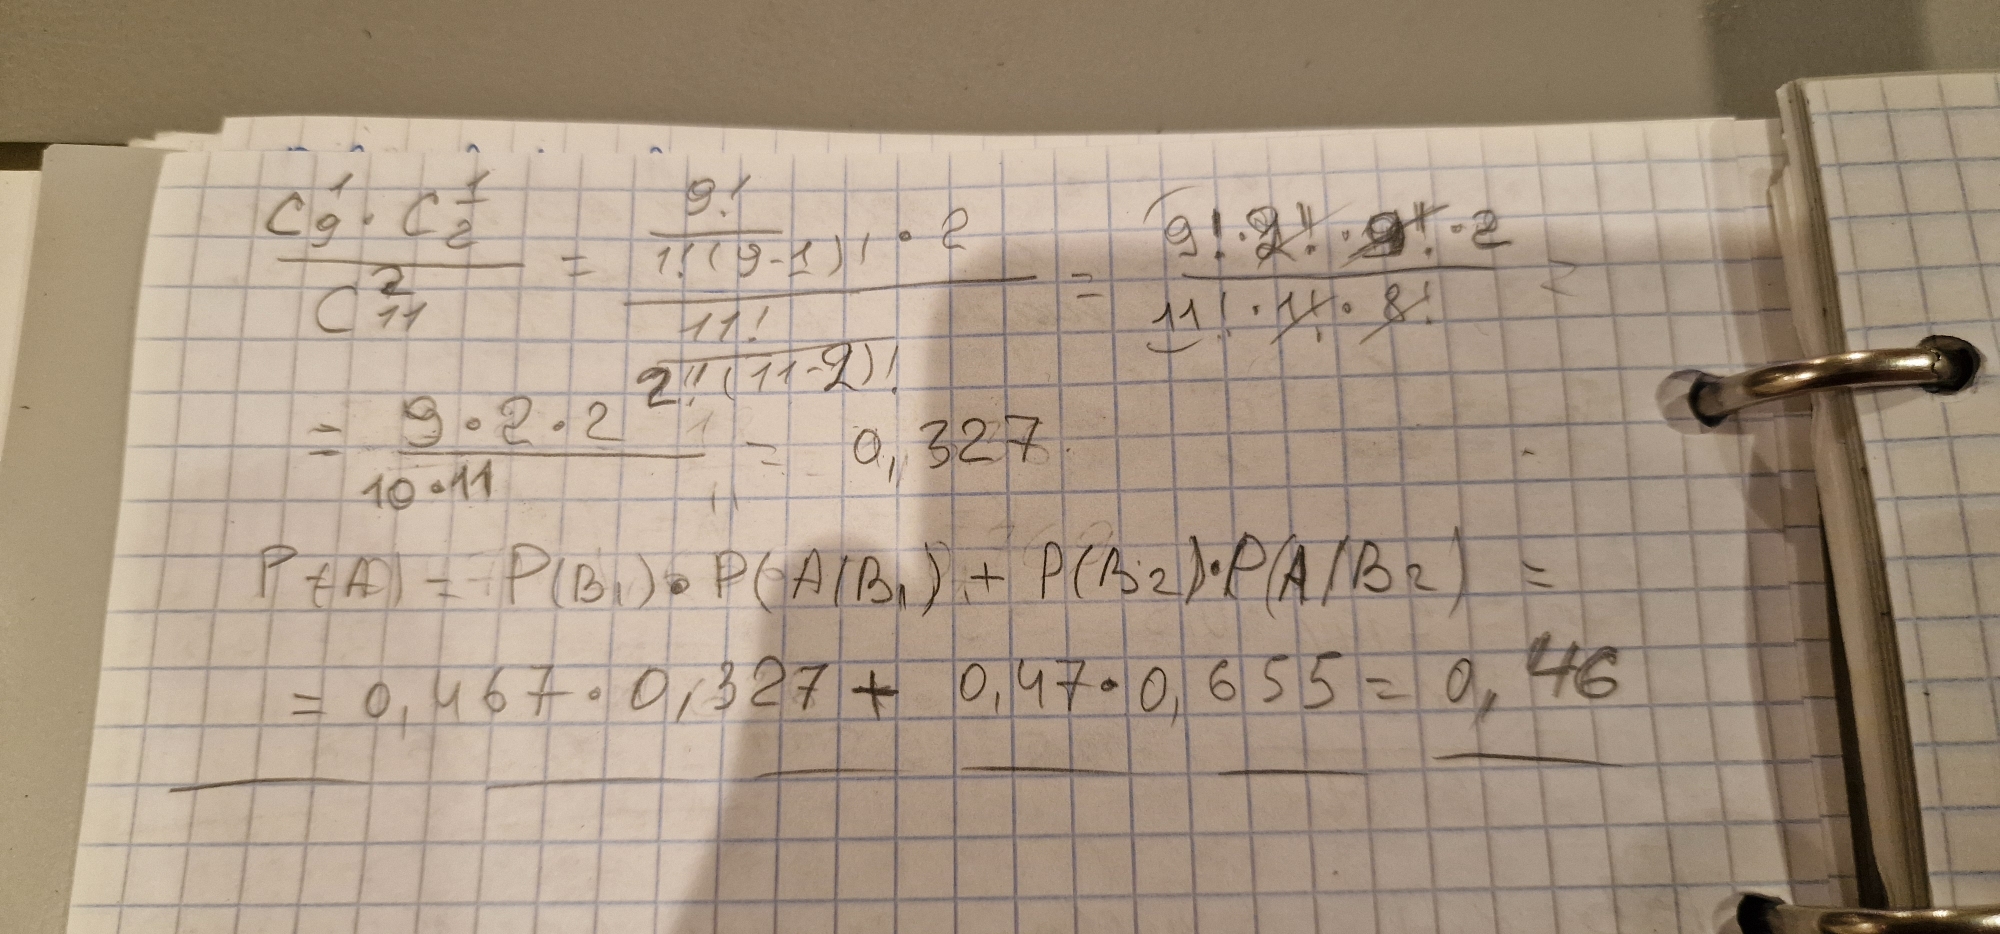 C¹₉ · C¹₂ / C²₁₁ = 9! / 1!(9-1)! · 2 / 11! / 2!(11-2)! = 9! · 2! · 9! · 2 / 11! · 1! · 8! =
= 9 · 2 · 2 / 10 · 11 = 0,327
P(A) = P(B₁) · P(A/B₁) + P(B₂) · P(A/B₂) =
= 0,467 · 0,327 + 0,47 · 0,655 = 0,46